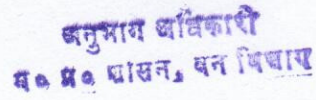 अनुभाग अधिकारी
म० प्र० शासन, वन विभाग